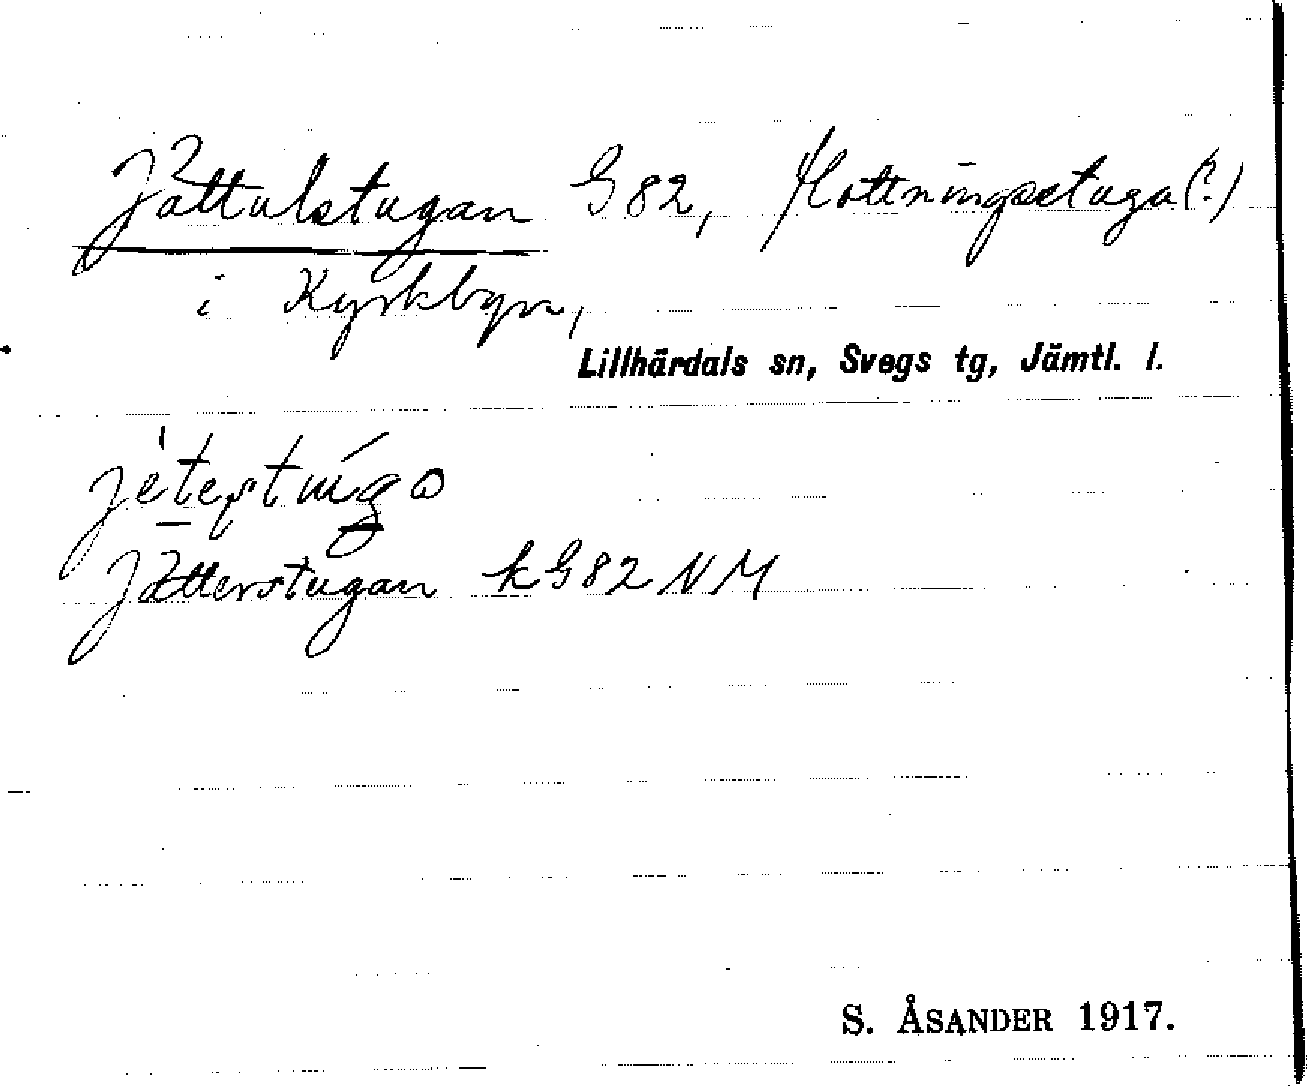 Jättulstugan G 82, slottningsstuga (?)
i Kyrkbyn,
Lillhärdals sn, Svegs tg, Jämtl. l.
Jätterstugan k G 82 NM
S. ÅSANDER 1917.